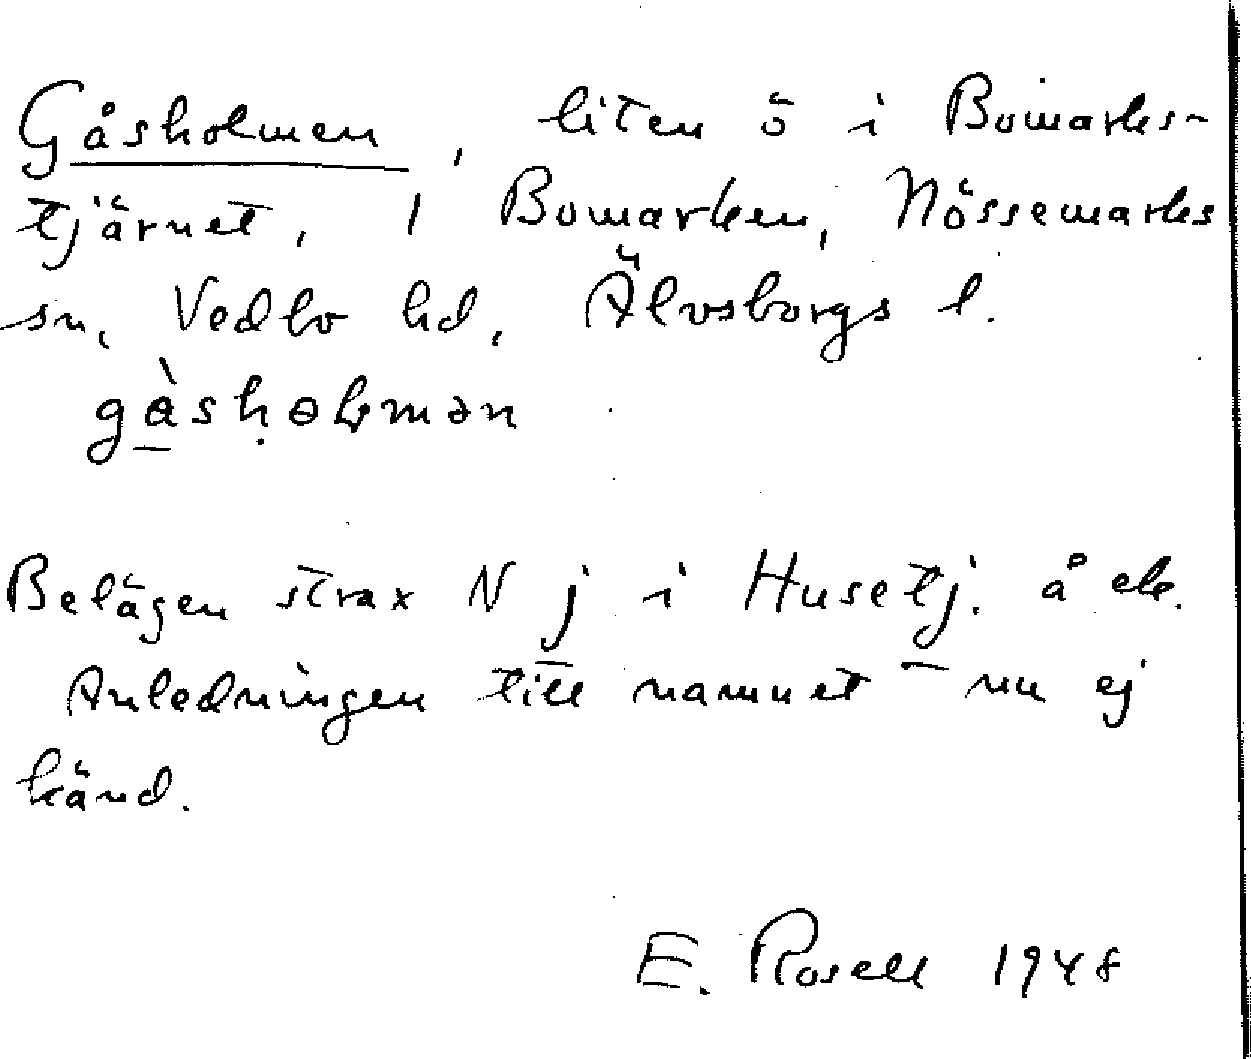 Gåsholmen, liten ö i Bomarks-
tjärnet, 1 Bomarken, Nössemarks
sn, Vedbo hd, Älvsborgs l.
gàsḥolmən
Belägen strax N j i Husetj. å ek.
Anledningen till namnet nu ej
känd.
E. Rosell 1948